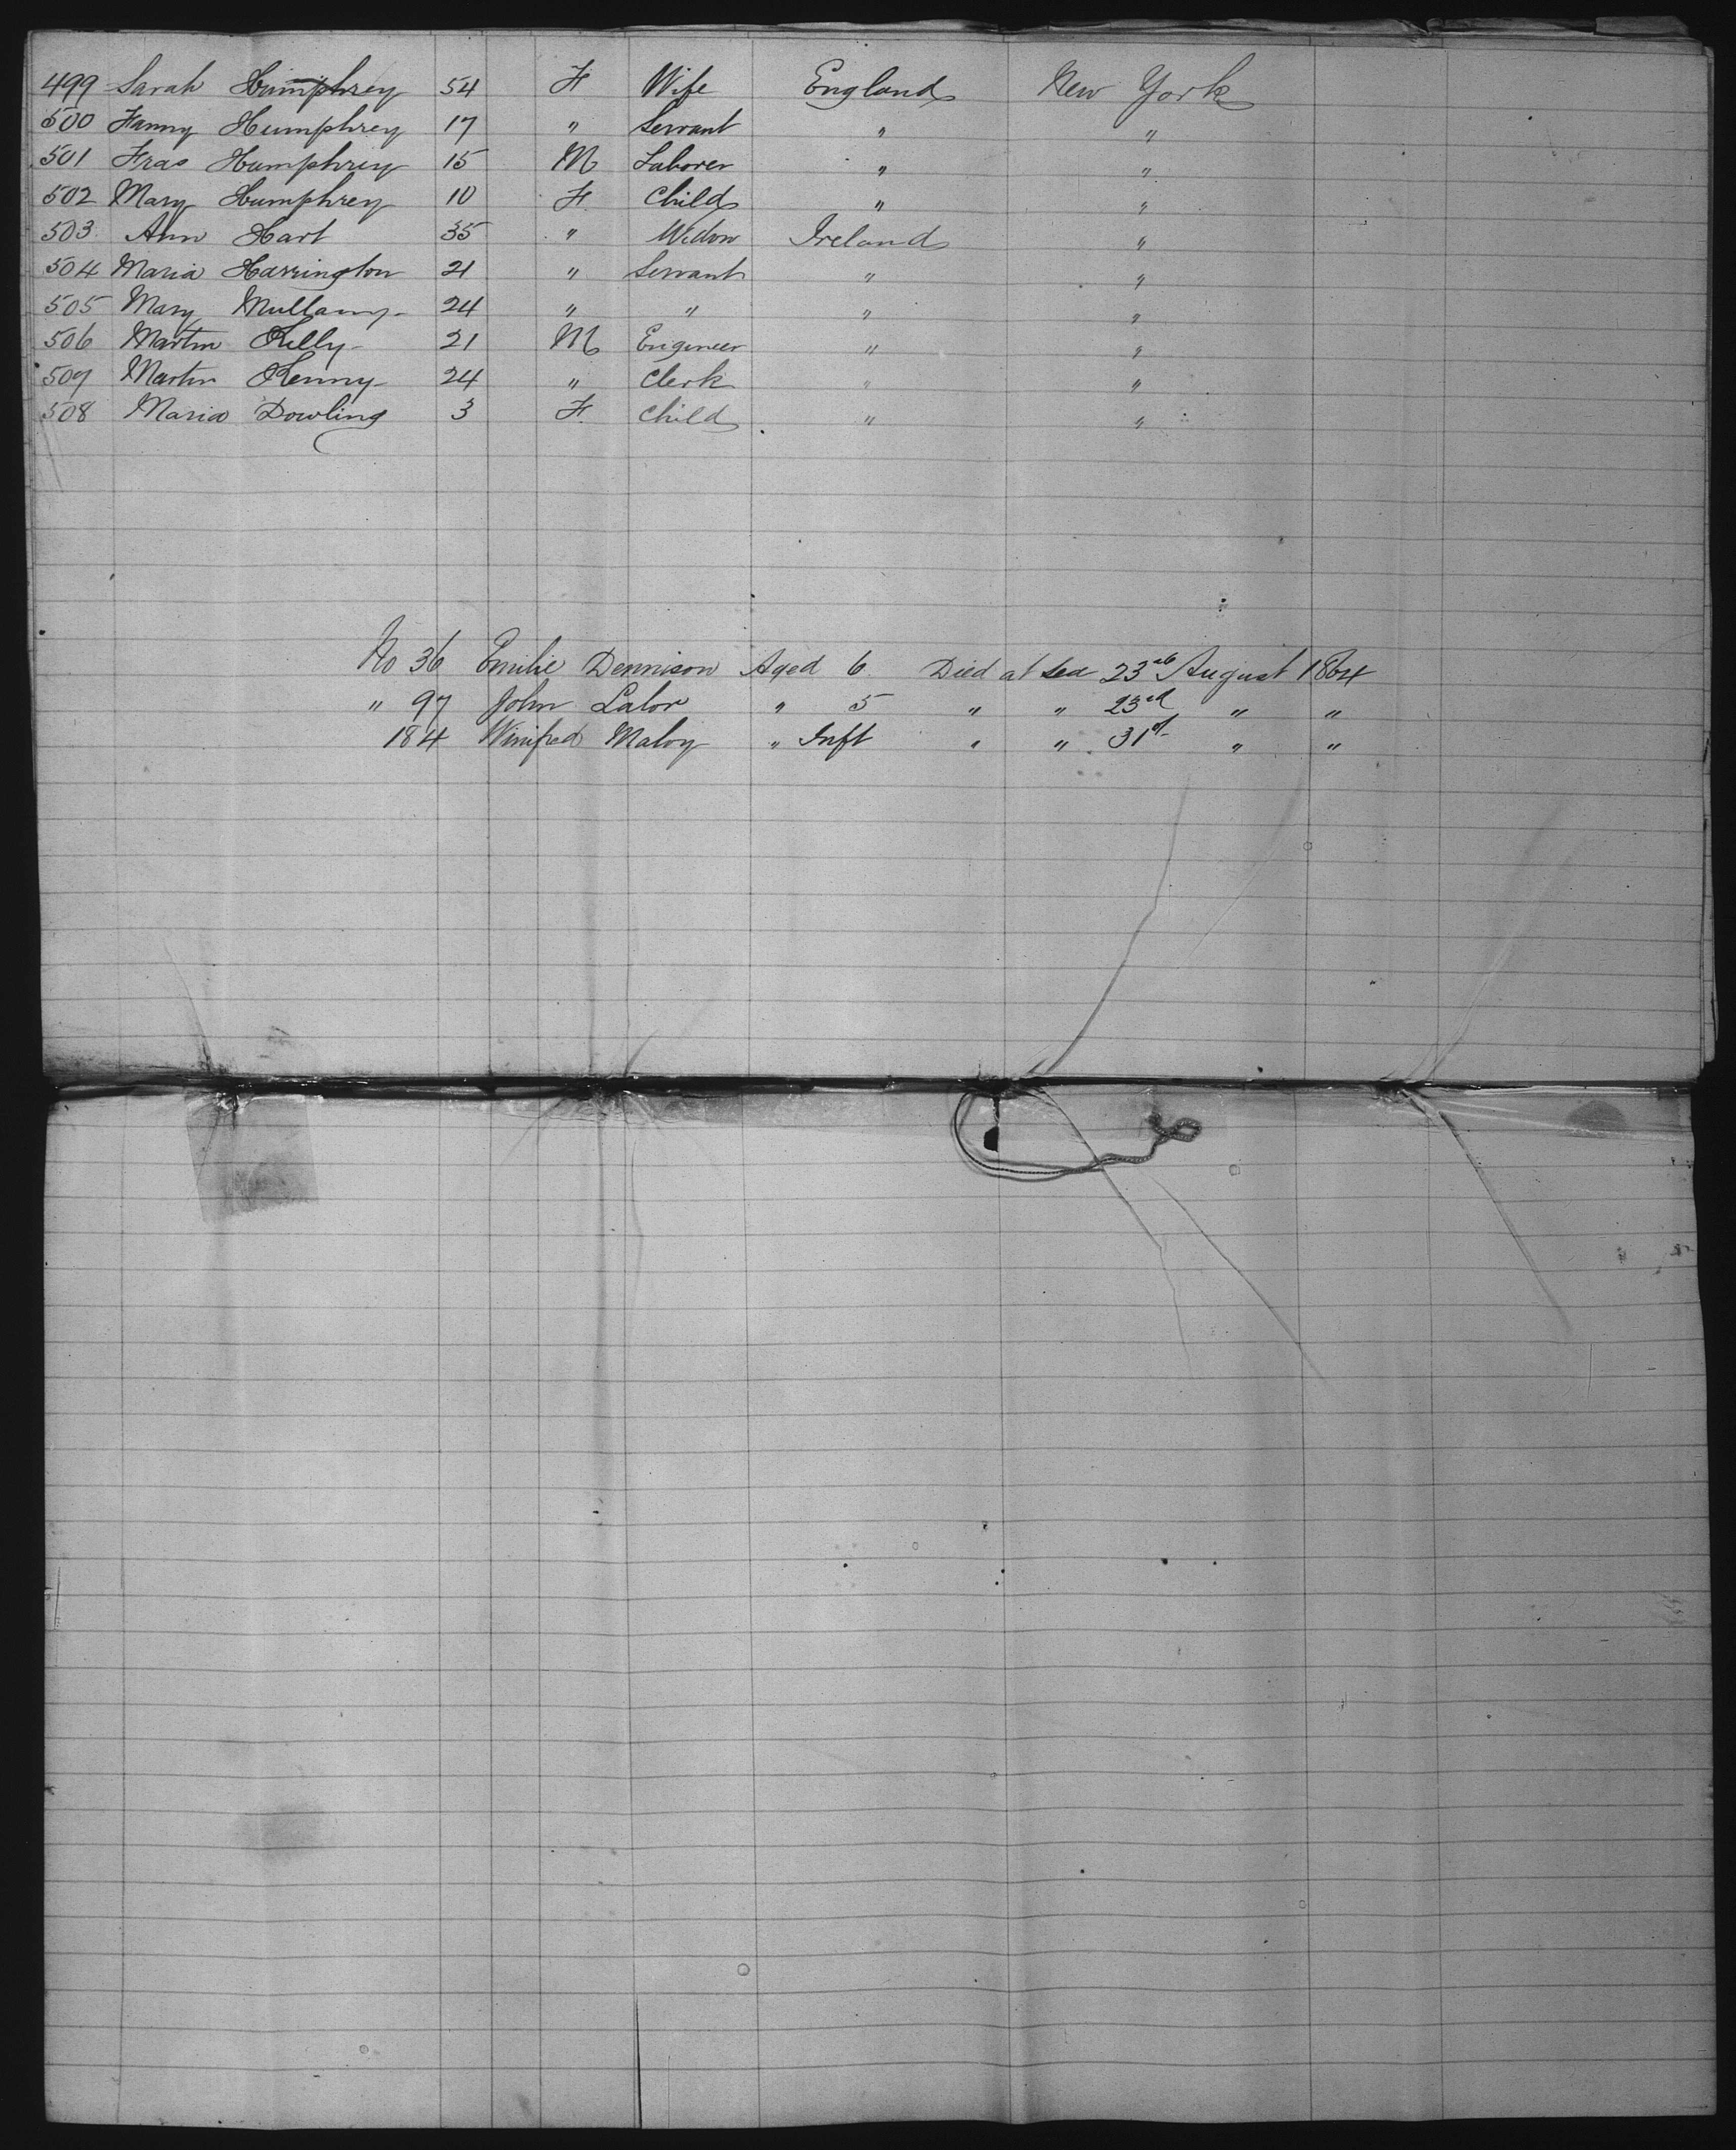 499 Sarah Humphrey 54 F Wife England New York
500 Fanny Humphrey 17 " Servant " "
501 Fras Humphrey 15 M Laborer " "
502 Mary Humphrey 10 F Child " "
503 Ann Hart 35 " Widow Ireland "
504 Maria Harrington 21 " Servant " "
505 Mary Mullany 24 " " " "
506 Martin Kelly 21 M Engineer " "
507 Martin Kenny 24 " Clerk " "
508 Maria Dowling 3 F Child " "
No 36 Emilie Dennison Aged 6 Died at Sea 23rd August 1864
" 97 John Lalor " 5 " " 23rd " "
184 Winifred Maloy " Inft " " 31st " "